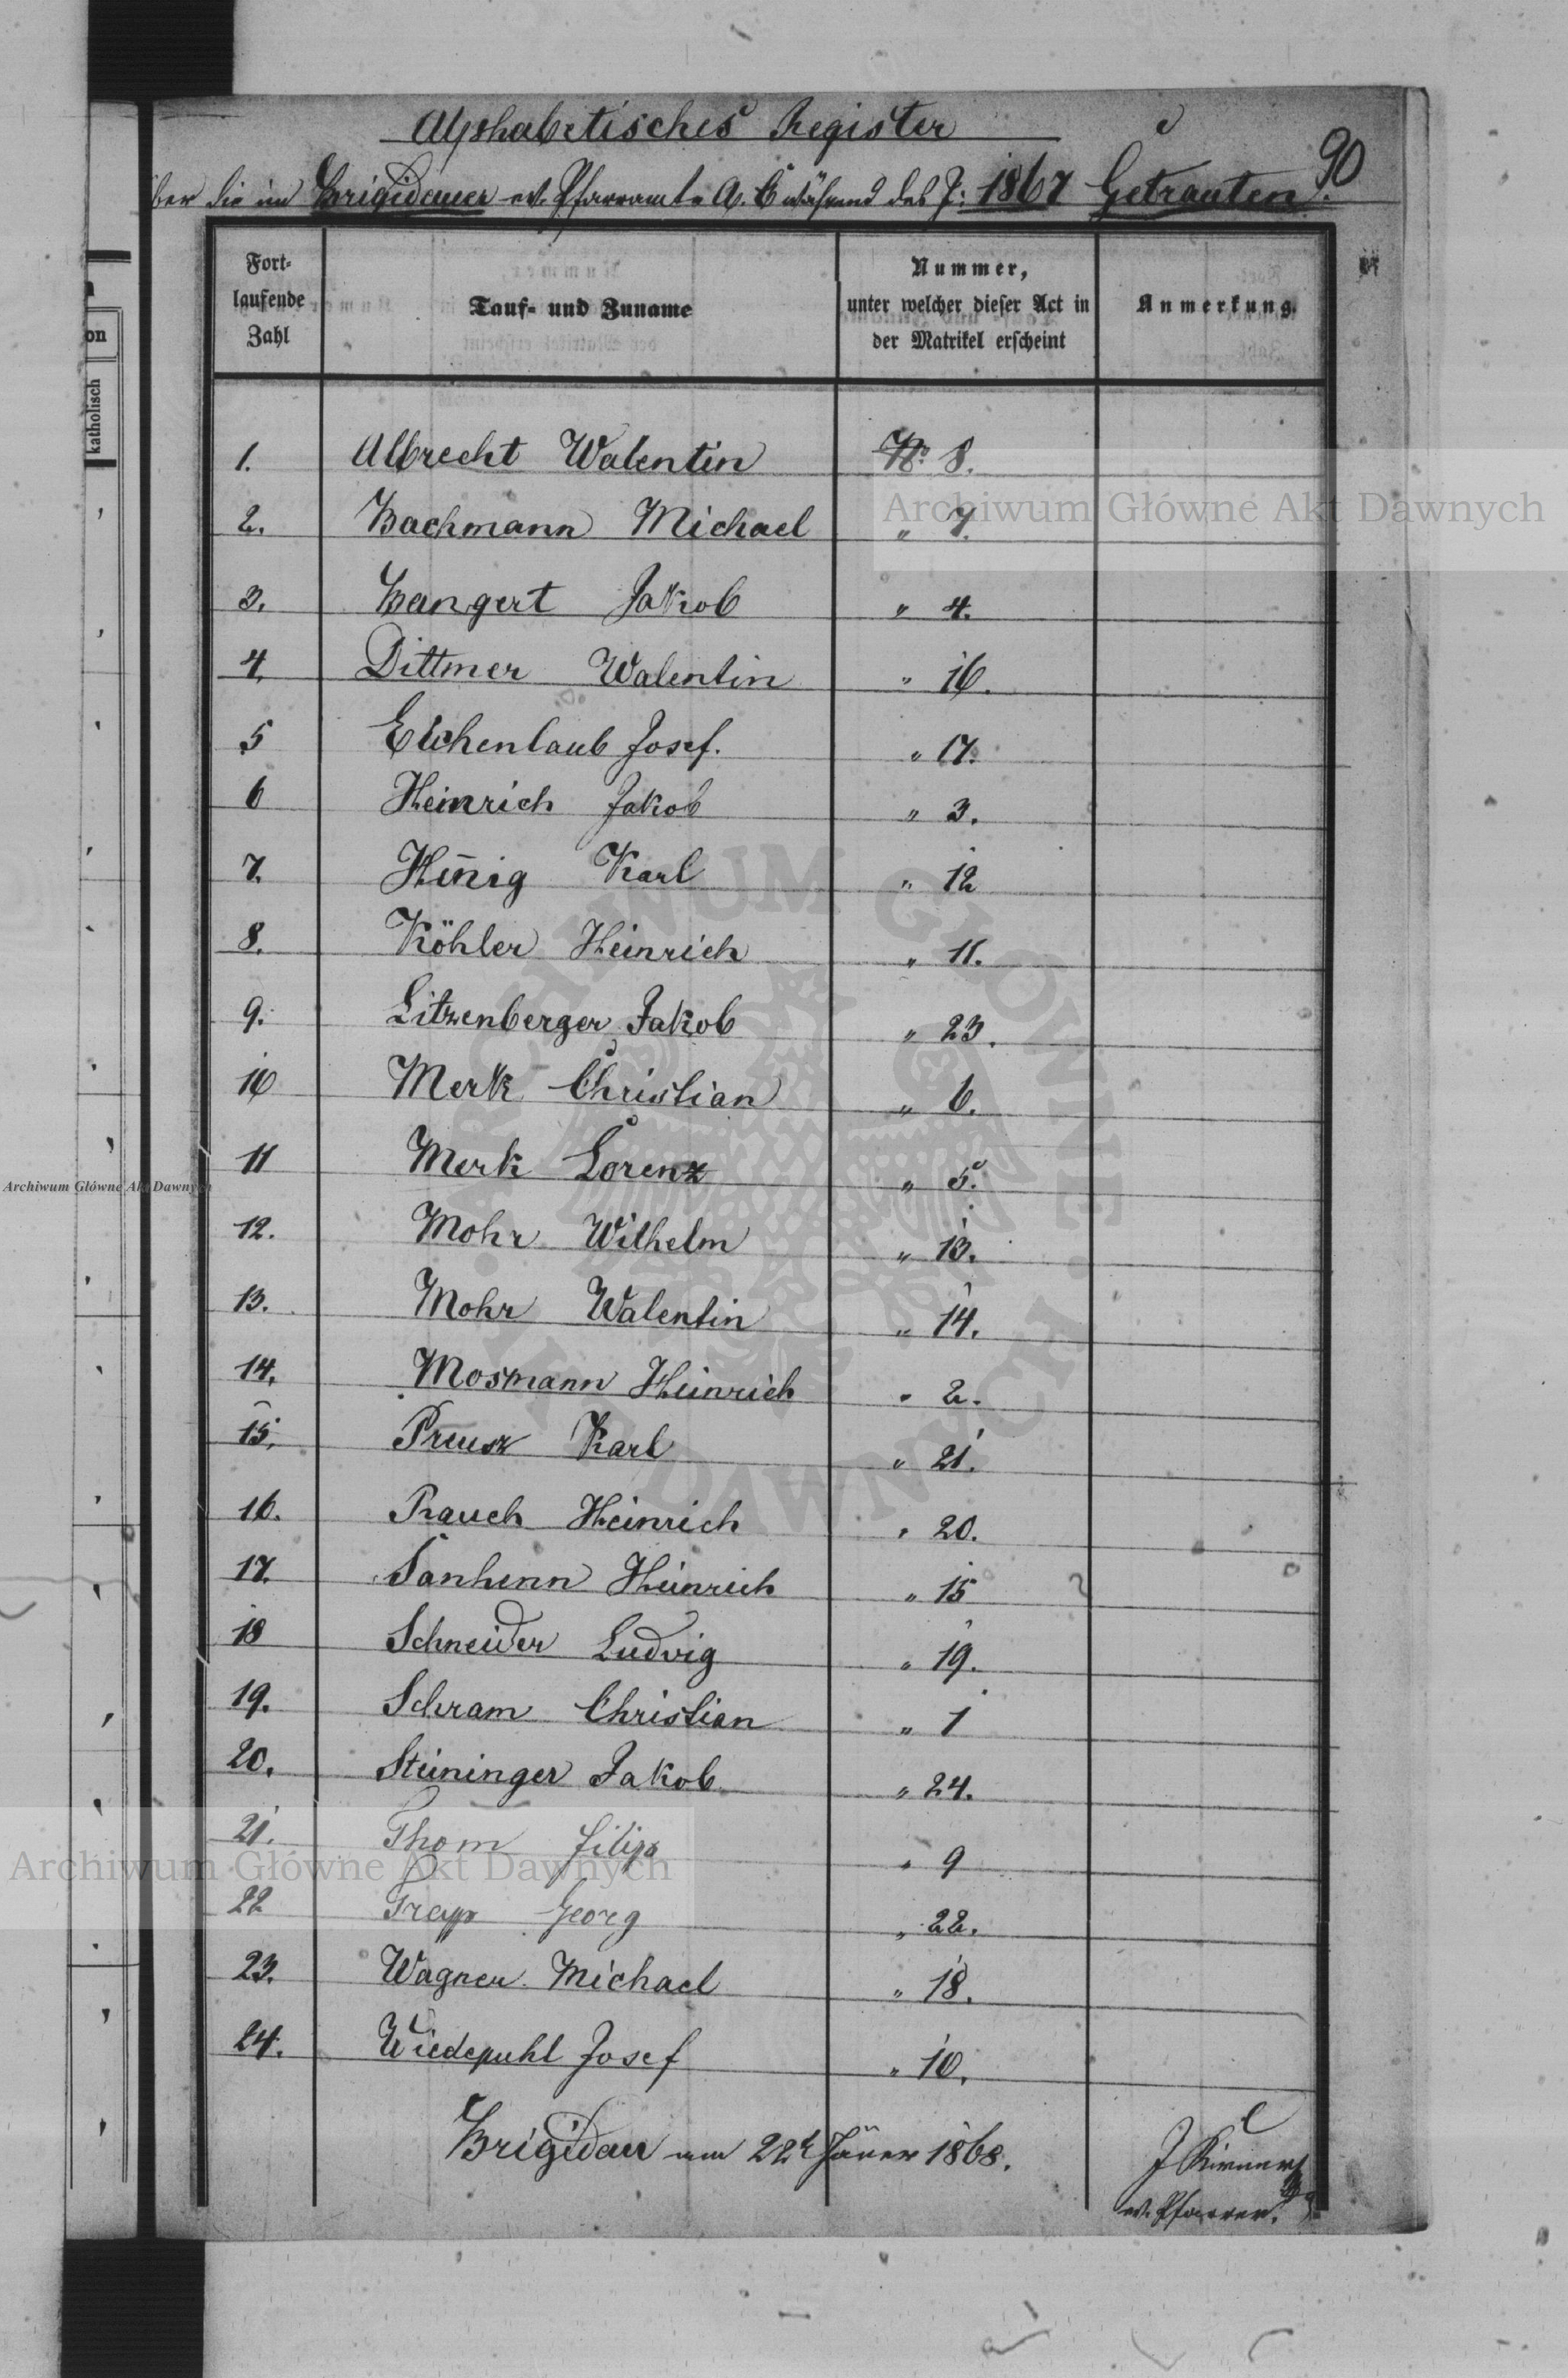 Alphabetisches Register
90
über die im Brigidauer ev. Pfarramte A. C. während des J: 1867 Getrauten.
Fort-
laufende
Zahl
Tauf- und Zuname
Nummer,
unter welcher dieser Act in
der Matrikel erscheint
Anmerkung.
on
katholisch
1. Albrecht Walentin No 8.
2. Bachmann Michael " 7.
3. Bangert Jakob " 4.
4. Dittmer Walentin " 16.
5 Eichenlaub Josef. " 17.
6 Heinrich Jakob " 3.
7. Hen̄ig Karl " 12
8. Köhler Heinrich " 11.
9. Litzenberger Jakob " 23.
10 Merk Christian " 6.
11 Merk Lorenz " 5.
12. Mohr Wilhelm " 13.
13. Mohr Walentin " 14.
14. Mosmann Heinrich " 2.
15. Preusz Karl " 21.
16. Rauch Heinrich " 20.
17. Sanhenn Heinrich " 15
18 Schneider Ludvig " 19.
19. Schram Christian " 1
20. Steininger Jakob " 24.
21. Thom Filip " 9
22 Trapp Georg " 22.
23. Wagner Michael " 18.
24. Wiedepuhl Josef " 10.
Brigidau am 22t Jäner 1868.
ev. Pfarrer.
Archiwum Główne Akt Dawnych
Archiwum Główne Akt Dawnych
Archiwum Główne Akt Dawnych
ARCHIWUM GŁÓWNE AKT DAWNYCH